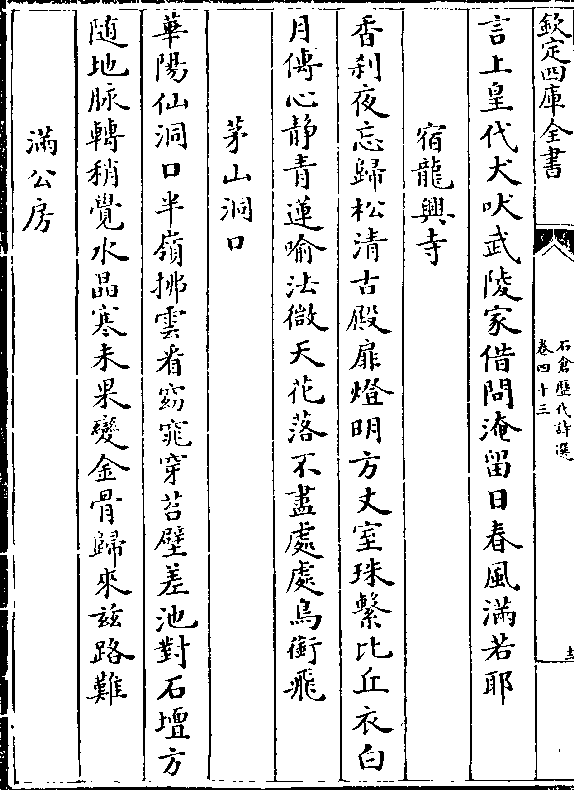 欽定四庫全書
石倉歷代詩選
卷四十三
言上皇代犬吠武陵家借問淹留日春風滿若耶
宿龍興寺
香刹夜忘歸松清古殿扉燈明方丈室珠繫比丘衣白
月傳心静青蓮喻法微天花落不盡處處鳥銜飛
茅山洞口
華陽仙洞口半嶺拂雲看窈窕穿苔壁差池對石壇方
随地脉轉稍覺水晶寒未果變金骨歸來兹路難
滿公房